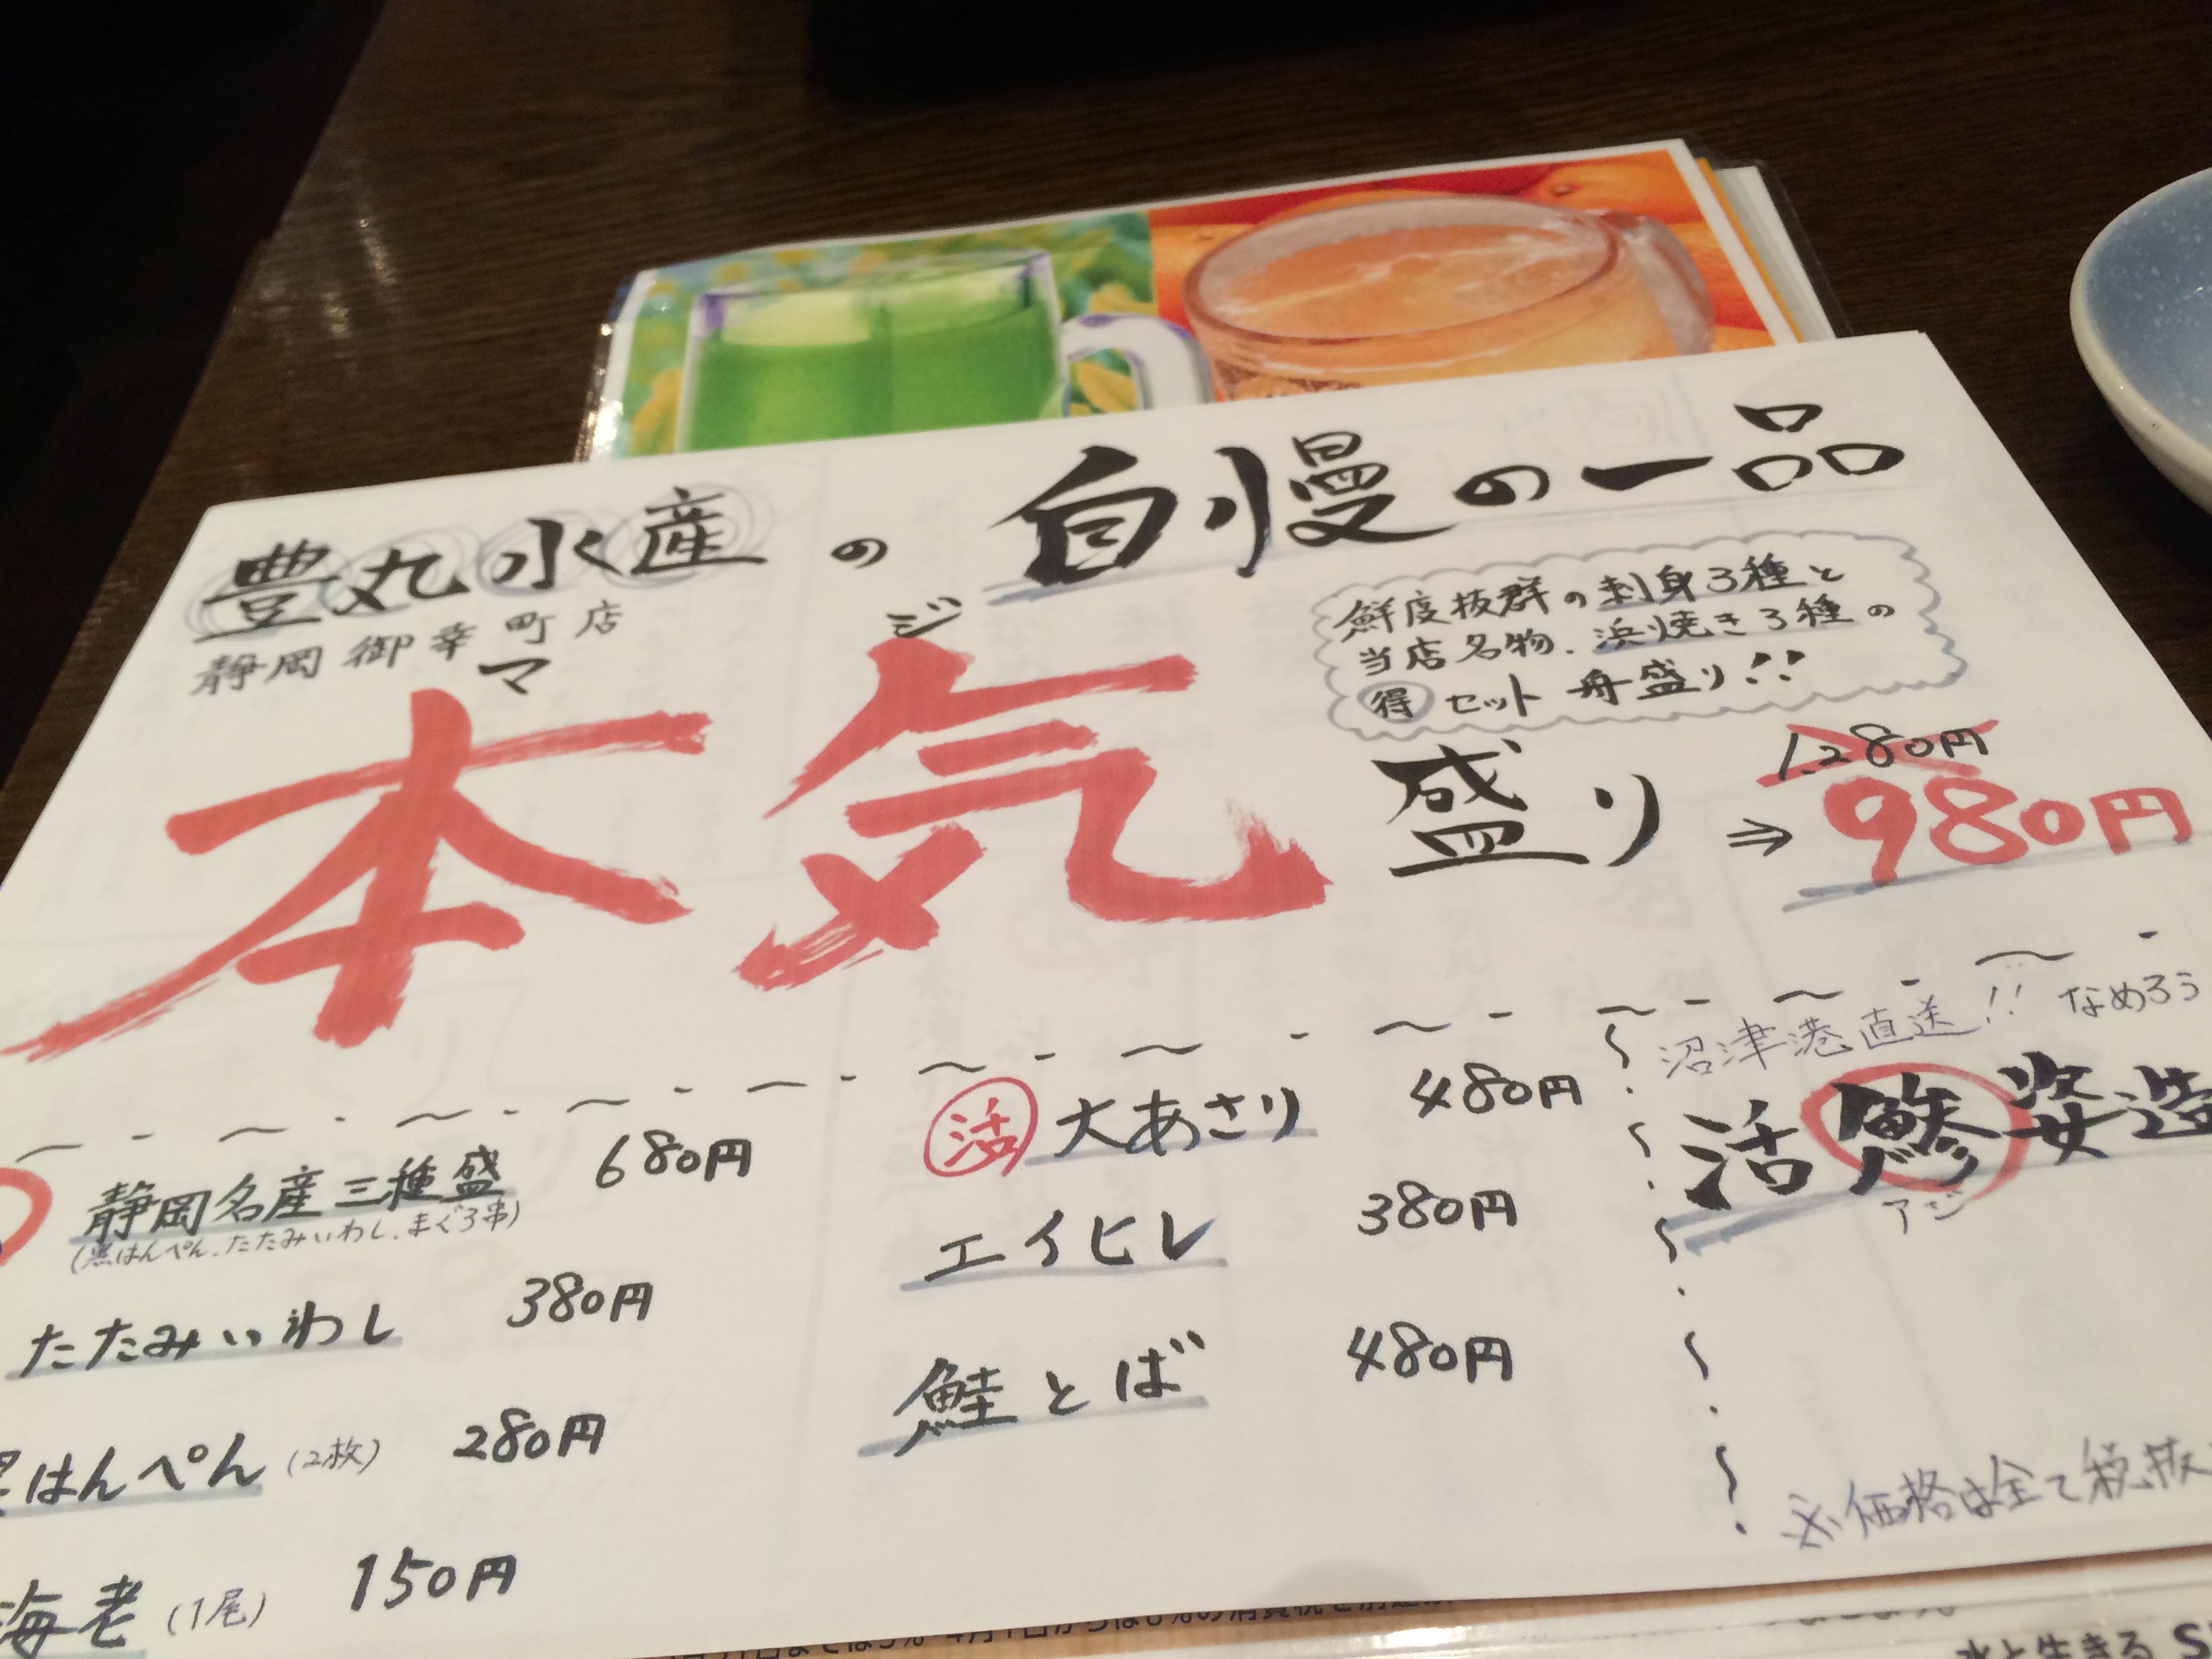 豊丸水産の自慢の一品
静岡御幸町店
マジ
本気盛り⇒
鮮度抜群の刺身3種と
当店名物、浜焼き3種の
得セット 舟盛り!!
1,280円
980円
静岡名産三種盛 680円
(黒はんぺん、たたみいわし、まぐろ串)
たたみいわし 380円
はんぺん(2枚) 280円
海老(1尾) 150円
活 大あさり 480円
エイヒレ 380円
鮭とば 480円
沼津港直送!! なめろう
活鯵姿造
アジ
※価格は全て税抜
水と生きる S